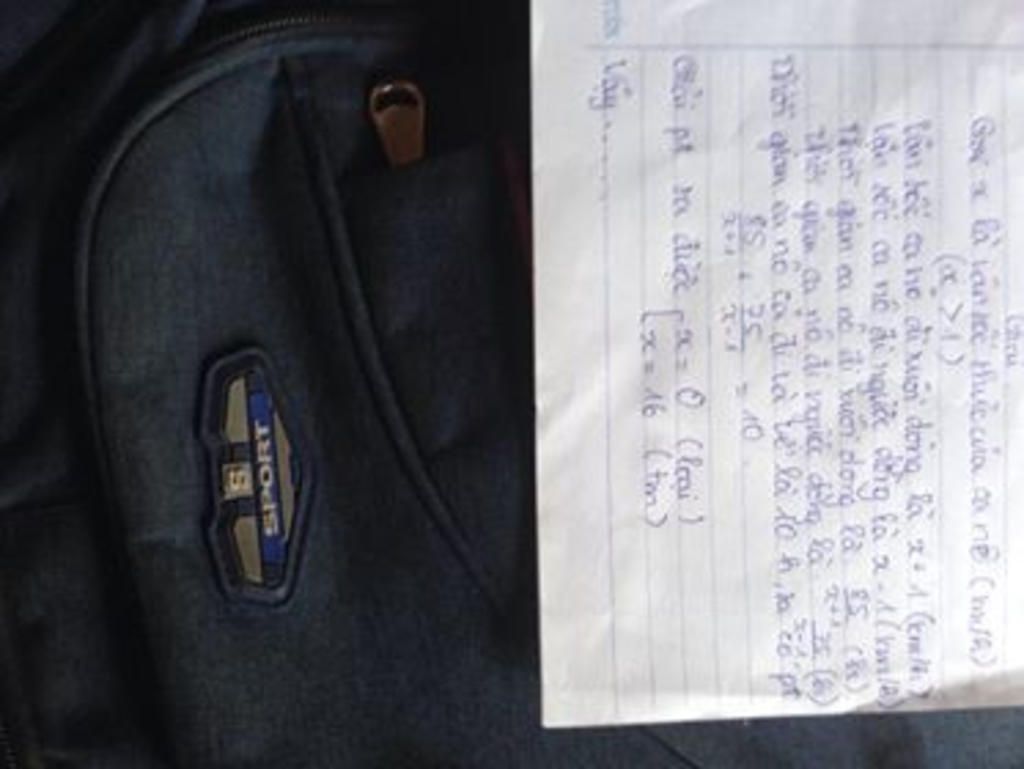 Gọi x là vận tốc thực của ca nô (km/h)
(x > 1)
Vận tốc ca nô đi xuôi dòng là x+1 (km/h)
Vận tốc ca nô đi ngược dòng là x-1 (km/h)
Thời gian ca nô đi xuôi dòng là 85/x+1 (h)
Thời gian ca nô đi ngược dòng là 75/x-1 (h)
Thời gian ca nô cả đi và về là 10h, ta có pt
85/x+1 + 75/x-1 = 10
Giải pt ra được [x = 0 (loại)
[x = 16 (tm)
Vậy.........
SPORT
S